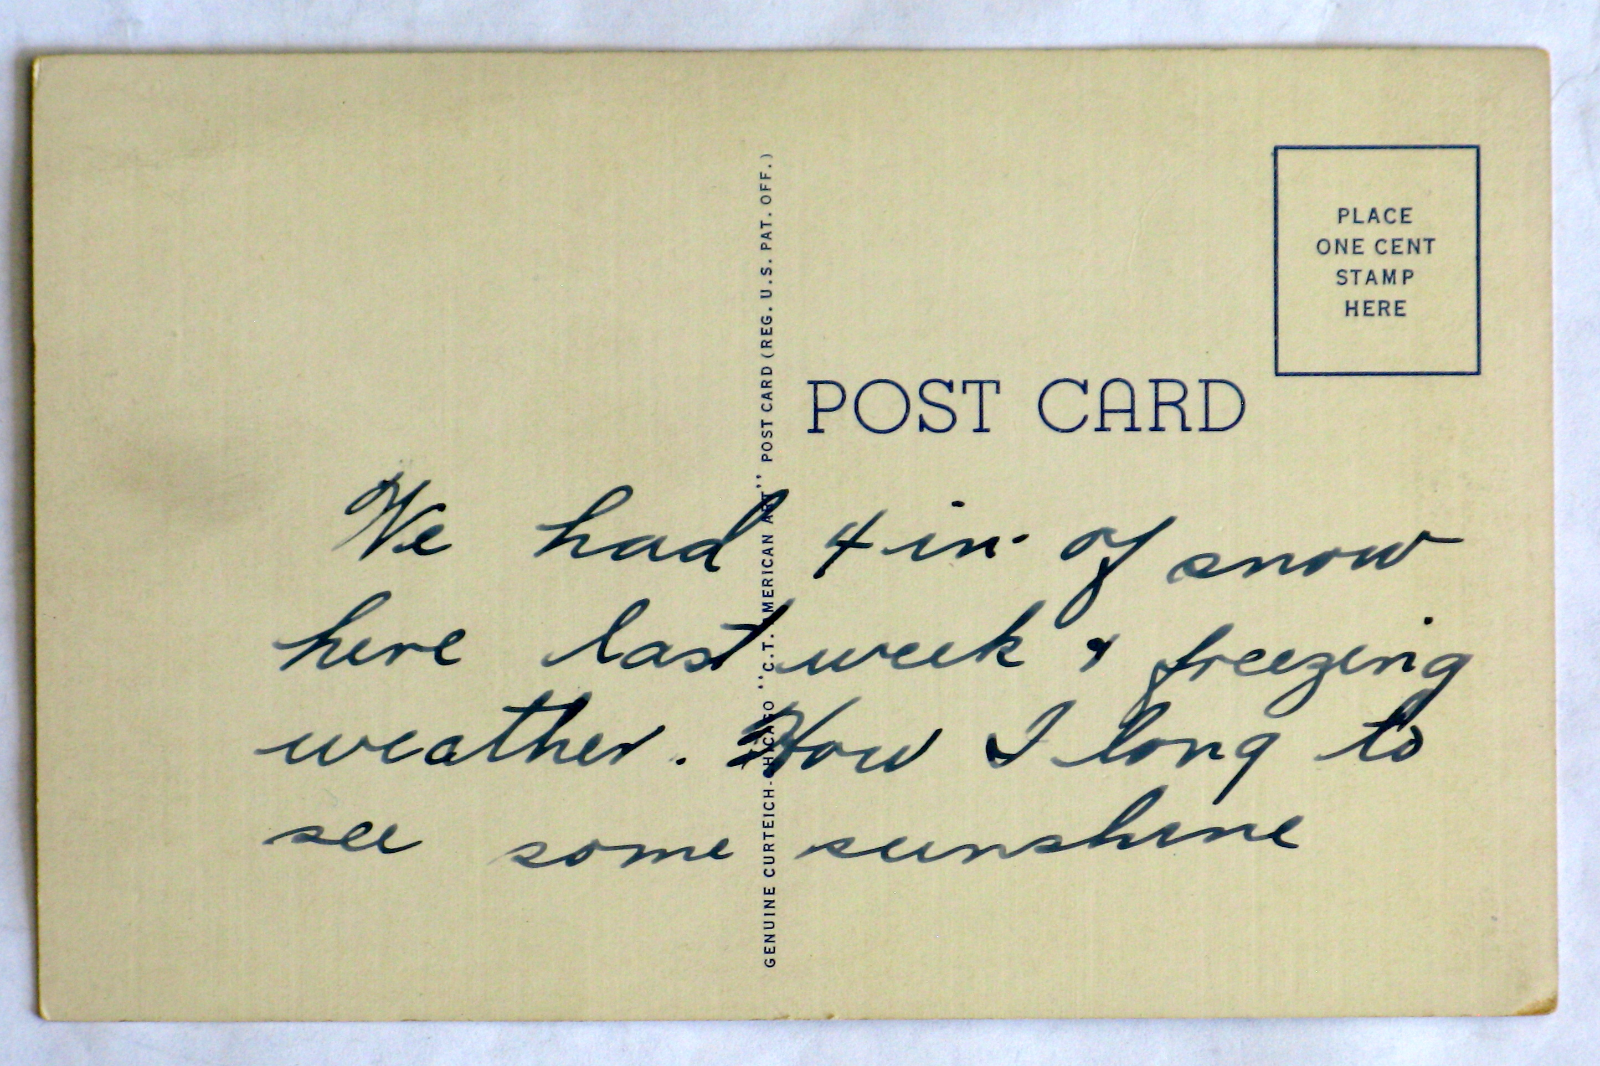 PLACE
ONE CENT
STAMP
HERE
POST CARD
GENUINE CURTEICH-CHICAGO "C.T. AMERICAN ART" POST CARD (REG. U.S. PAT. OFF.)
We had 4 in. of snow
here last week & freezing
weather. How I long to
see some sunshine